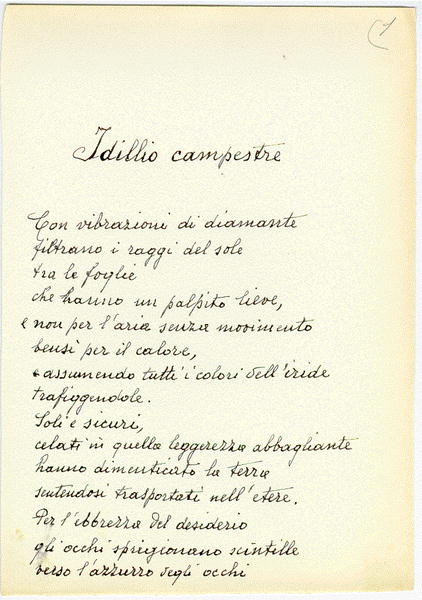 1
Idillio campestre
Con vibrazioni di diamante
filtrano i raggi del sole
tra le foglie
che hanno un palpito lieve,
e non per l'aria senza movimento
bensì per il calore,
assumendo tutti i colori dell'iride
trafiggendole.
Soli e sicuri,
celati in quella leggerezza abbagliante
hanno dimenticato la terra
sentendosi trasportati nell'etere.
Per l'ebbrezza del desiderio
gli occhi sprigionano scintille
verso l'azzurro degli occhi